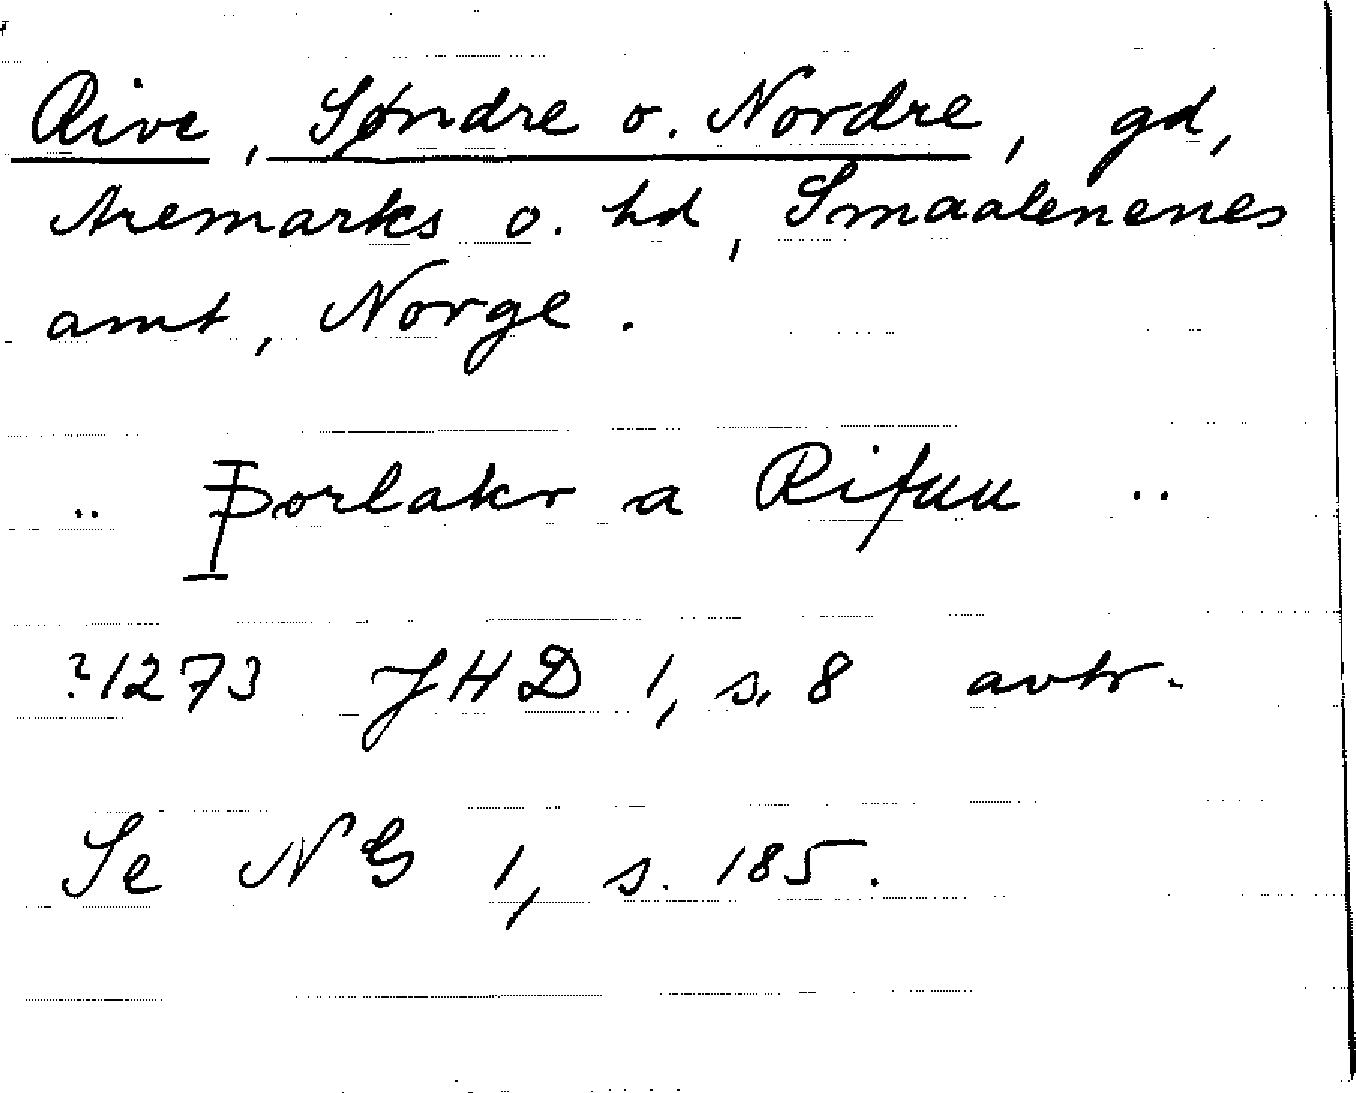 Rive, Søndre o. Nordre, gd,
Aremarks o. hd, Smaalenenes
amt, Norge.
.. Þorlakr a Rifuu ..
?1273 JHD 1, s. 8 avtr.
Se NG 1, s. 185.